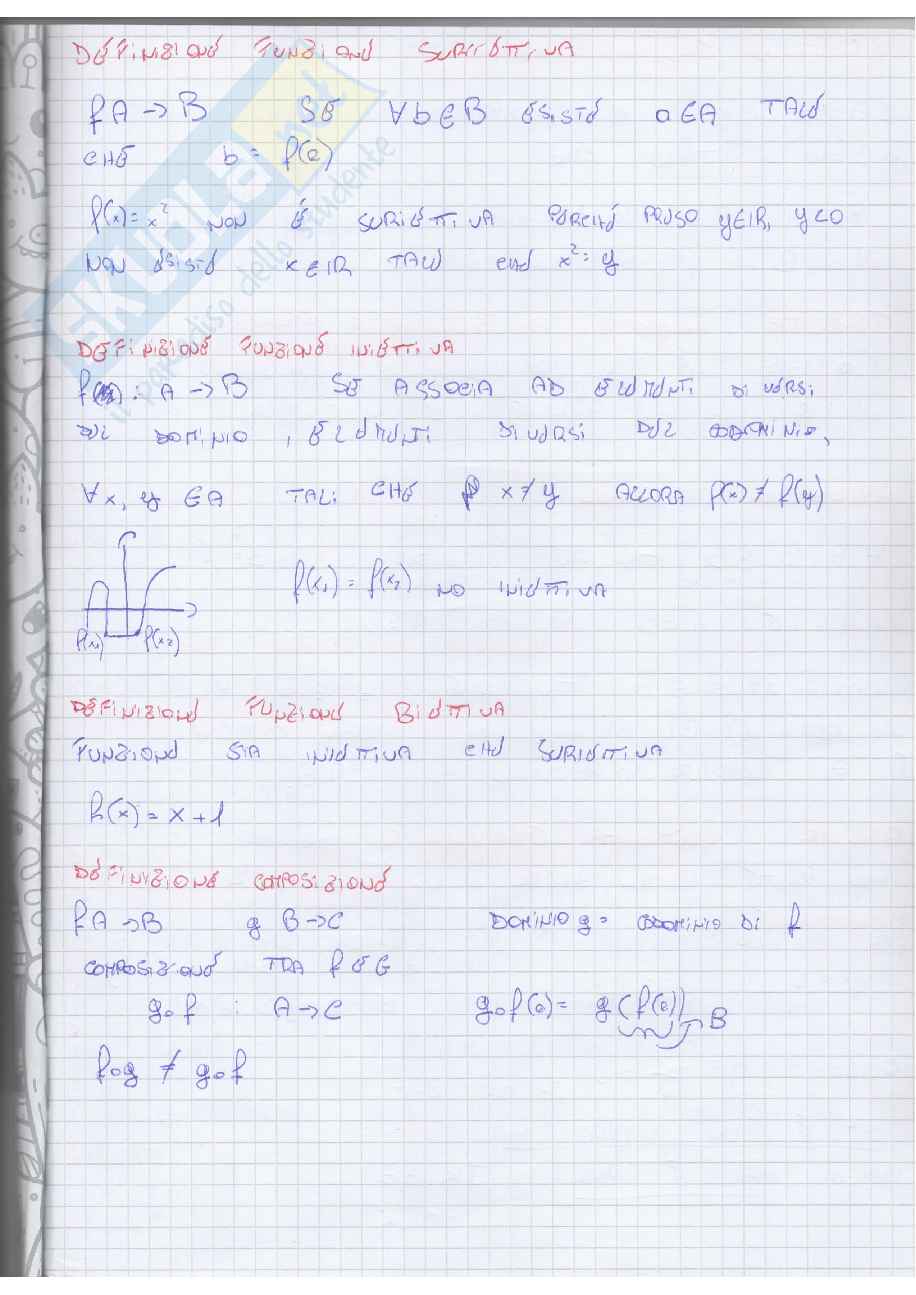 DEFINIZIONE FUNZIONE SURIETTIVA
f A → B SE ∀b∈B ESISTE a∈A TALE
CHE b = f(a)
f(x)=x² NON È SURIETTIVA PERCHÉ PRESO y∈IR, y<0
NON ESISTE x∈IR TALE CHE x²=y
DEFINIZIONE FUNZIONE INIETTIVA
f : A → B SE ASSOCIA AD ELEMENTI DIVERSI
DEL DOMINIO, ELEMENTI DIVERSI DEL CODOMINIO,
∀x, y ∈A TALI CHE x≠y ALLORA f(x)≠f(y)
f(x₁) = f(x₂) NO INIETTIVA
f(x₁) f(x₂)
DEFINIZIONE FUNZIONE BIETTIVA
FUNZIONE SIA INIETTIVA CHE SURIETTIVA
h(x) = x+1
DEFINIZIONE COMPOSIZIONE
f A→B g B→C DOMINIO g = CODOMINIO DI f
COMPOSIZIONE TRA f E G
g∘f : A→C g∘f(a) = g(f(a)) B
f∘g ≠ g∘f
SKUOLA.net
il paradiso dello studente